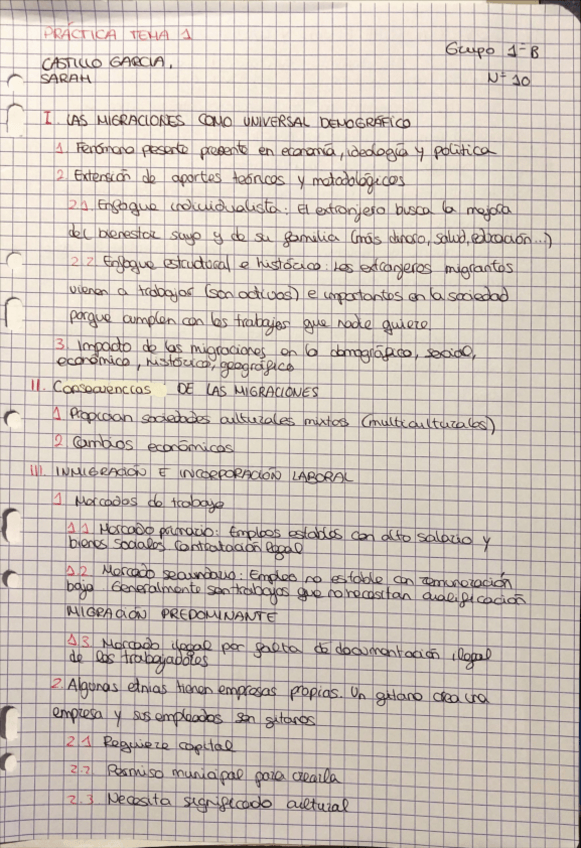 PRÁCTICA TEMA 1
Grupo 1ºB
CASTILLO GARCIA,
SARAH
Nº 10
I. LAS MIGRACIONES COMO UNIVERSAL DEMOGRÁFICO
1. Fenómeno presente presente en economía, ideología y política
2. Extensión de aportes teóricos y metodológicos
2.1. Enfoque individualista: El extranjero busca la mejora
del bienestar suyo y de su familia (más dinero, salud, educación...)
2.2. Enfoque estructural e histórico: Los extranjeros migrantes
vienen a trabajos (son activos) e importantes en la sociedad
porque cumplen con los trabajos que nadie quiere
3. Impacto de las migraciones en lo demográfico, social,
económico, histórico, geográfico
II. Consecuencias DE LAS MIGRACIONES
1. Propician sociedades culturales mixtas (multiculturales)
2. Cambios económicos
III. INMIGRACIÓN E INCORPORACIÓN LABORAL
1. Mercados de trabajo
1.1. Mercado primario: Empleos estables con alto salario y
bienes sociales. Contratación legal
1.2. Mercado secundario: Empleo no estable con remuneración
baja. Generalmente son trabajos que no necesitan cualificación
MIGRACIÓN PREDOMINANTE
1.3. Mercado ilegal por falta de documentación legal
de los trabajadores
2. Algunas etnias tienen empresas propias. Un gitano crea una
empresa y sus empleados son gitanos
2.1 Requiere capital
2.2. Permiso municipal para crearla
2.3 Necesita significado cultural